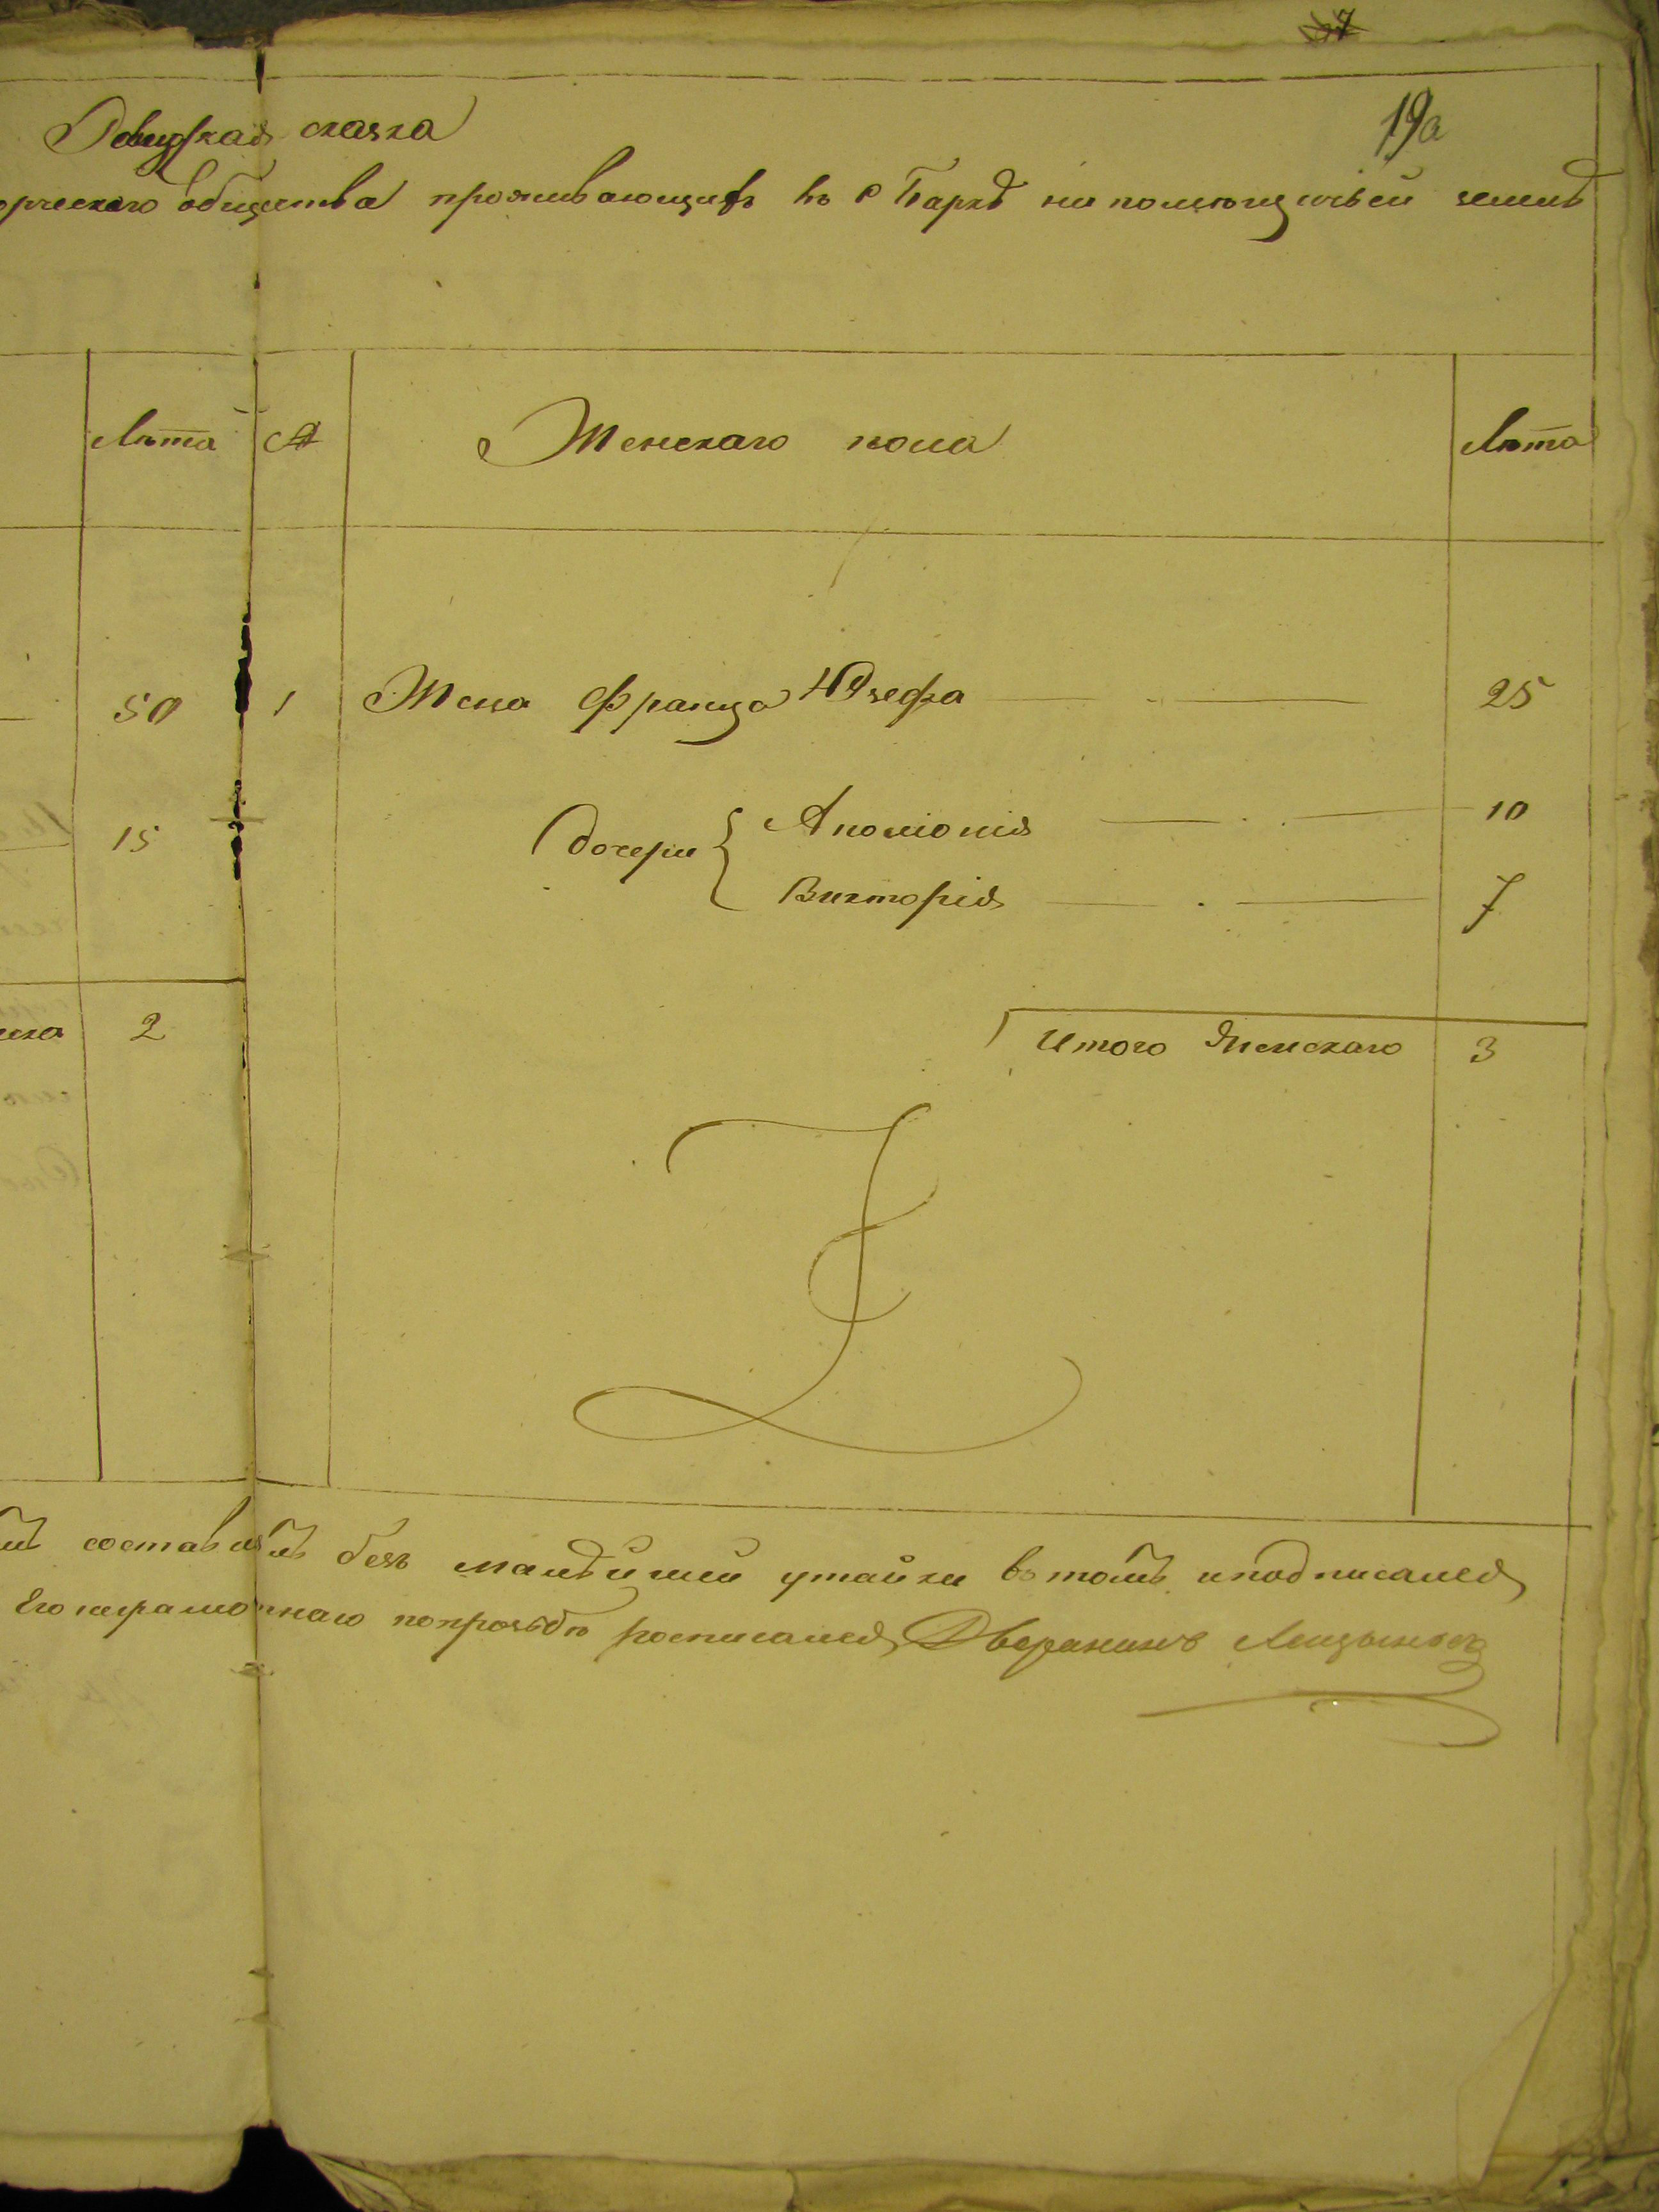 19а
Ревизская сказка
орческаго общества проживающихъ въ с Баркѣ на помѣщичьей землѣ
Лѣта № Женскаго пола Лѣта
50 1 Жена Франца Юзефа 25
15 дочери Аполонія 10
Викторія 7
2 Итого Женскаго 3
составлѣнъ безъ малѣйшей утайки въ томъ и подписался
Его неграмотнаго по прозьбѣ росписался Дворянинъ